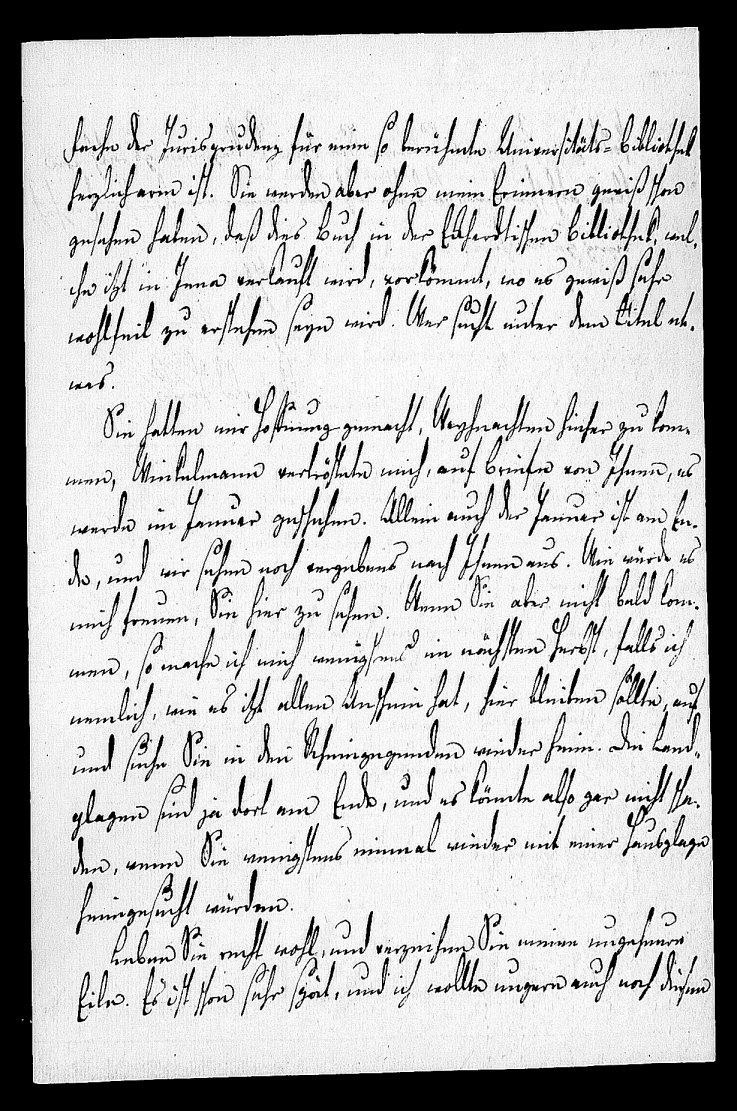 Fache der Jurisprudenz für eine so berühmte Universitäts-bibliothek
herzlich arm ist. Sie werden aber ohne mein Erinnern gewiß schon
gesehen haben, daß dies Buch in der Ekhardtischen bibliothek, wel-
che izt in Jena verkauft wird, vorkömmt, wo es gewiß sehr
wohlfeil zu erstehen seyn wird. Wer sucht unter dem titel et-
was.
Sie hatten mir Hoffnung gemacht, Weyhnachten hieher zu kom-
men, Winkelmann vertröstete mich, auf briefe von Ihnen, es
werde im Januar geschehen. Allein auch der Januar ist am En-
de, und wir sehen noch vergebens nach Ihnen aus. Wie würde es
mich freuen, Sie hier zu sehen. Wenn Sie aber nicht bald kom-
men, so mache ich mich wenigstens im nächsten Herbst, falls ich
nemlich, wie es izt allen Anschein hat, hier bleiben sollte, auf
und suche Sie in den Rheingegenden wieder heim. Die Land-
plagen sind ja dort am Ende, und es könnte also gar nicht scha-
den, wenn Sie wenigstens einmal wieder mit einer Hausplage
heimgesucht würden.
Leben Sie recht wohl, und verzeihen Sie meine ungeheure
Eile. Es ist schon sehr spät, und ich wollte ungern auch noch diesen